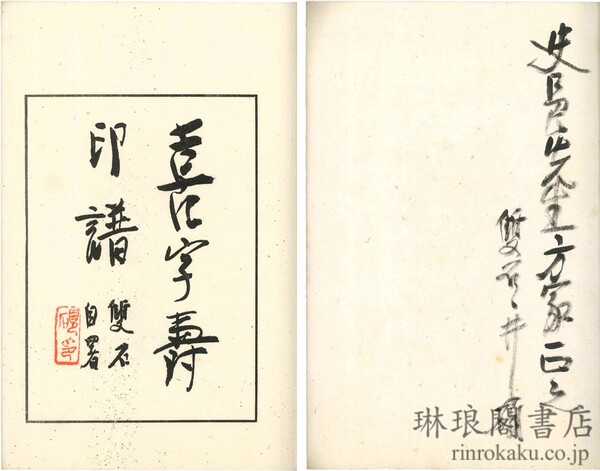 喜字壽
印譜
雙石
自署
先生方家正之
雙石
琳琅閣書店
rinrokaku.co.jp